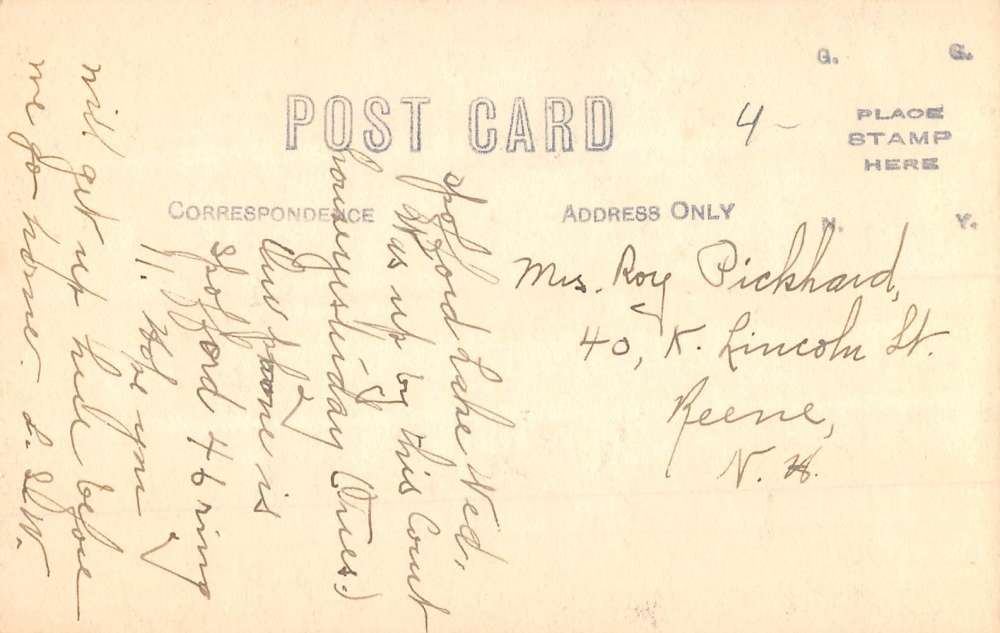 G. G.
POST CARD
4 -
PLACE
STAMP
HERE
CORRESPONDENCE
ADDRESS ONLY
N. Y.
Spofford Lake Wed.
Was up by this Court
house yesterday (Tues.)
Our phone is
Spofford 46 ring
11. Hope you
will get up here before
we go home. L. S. W.
Mrs. Roy Pickhard,
40, K. Lincoln St.
Keene,
N. H.